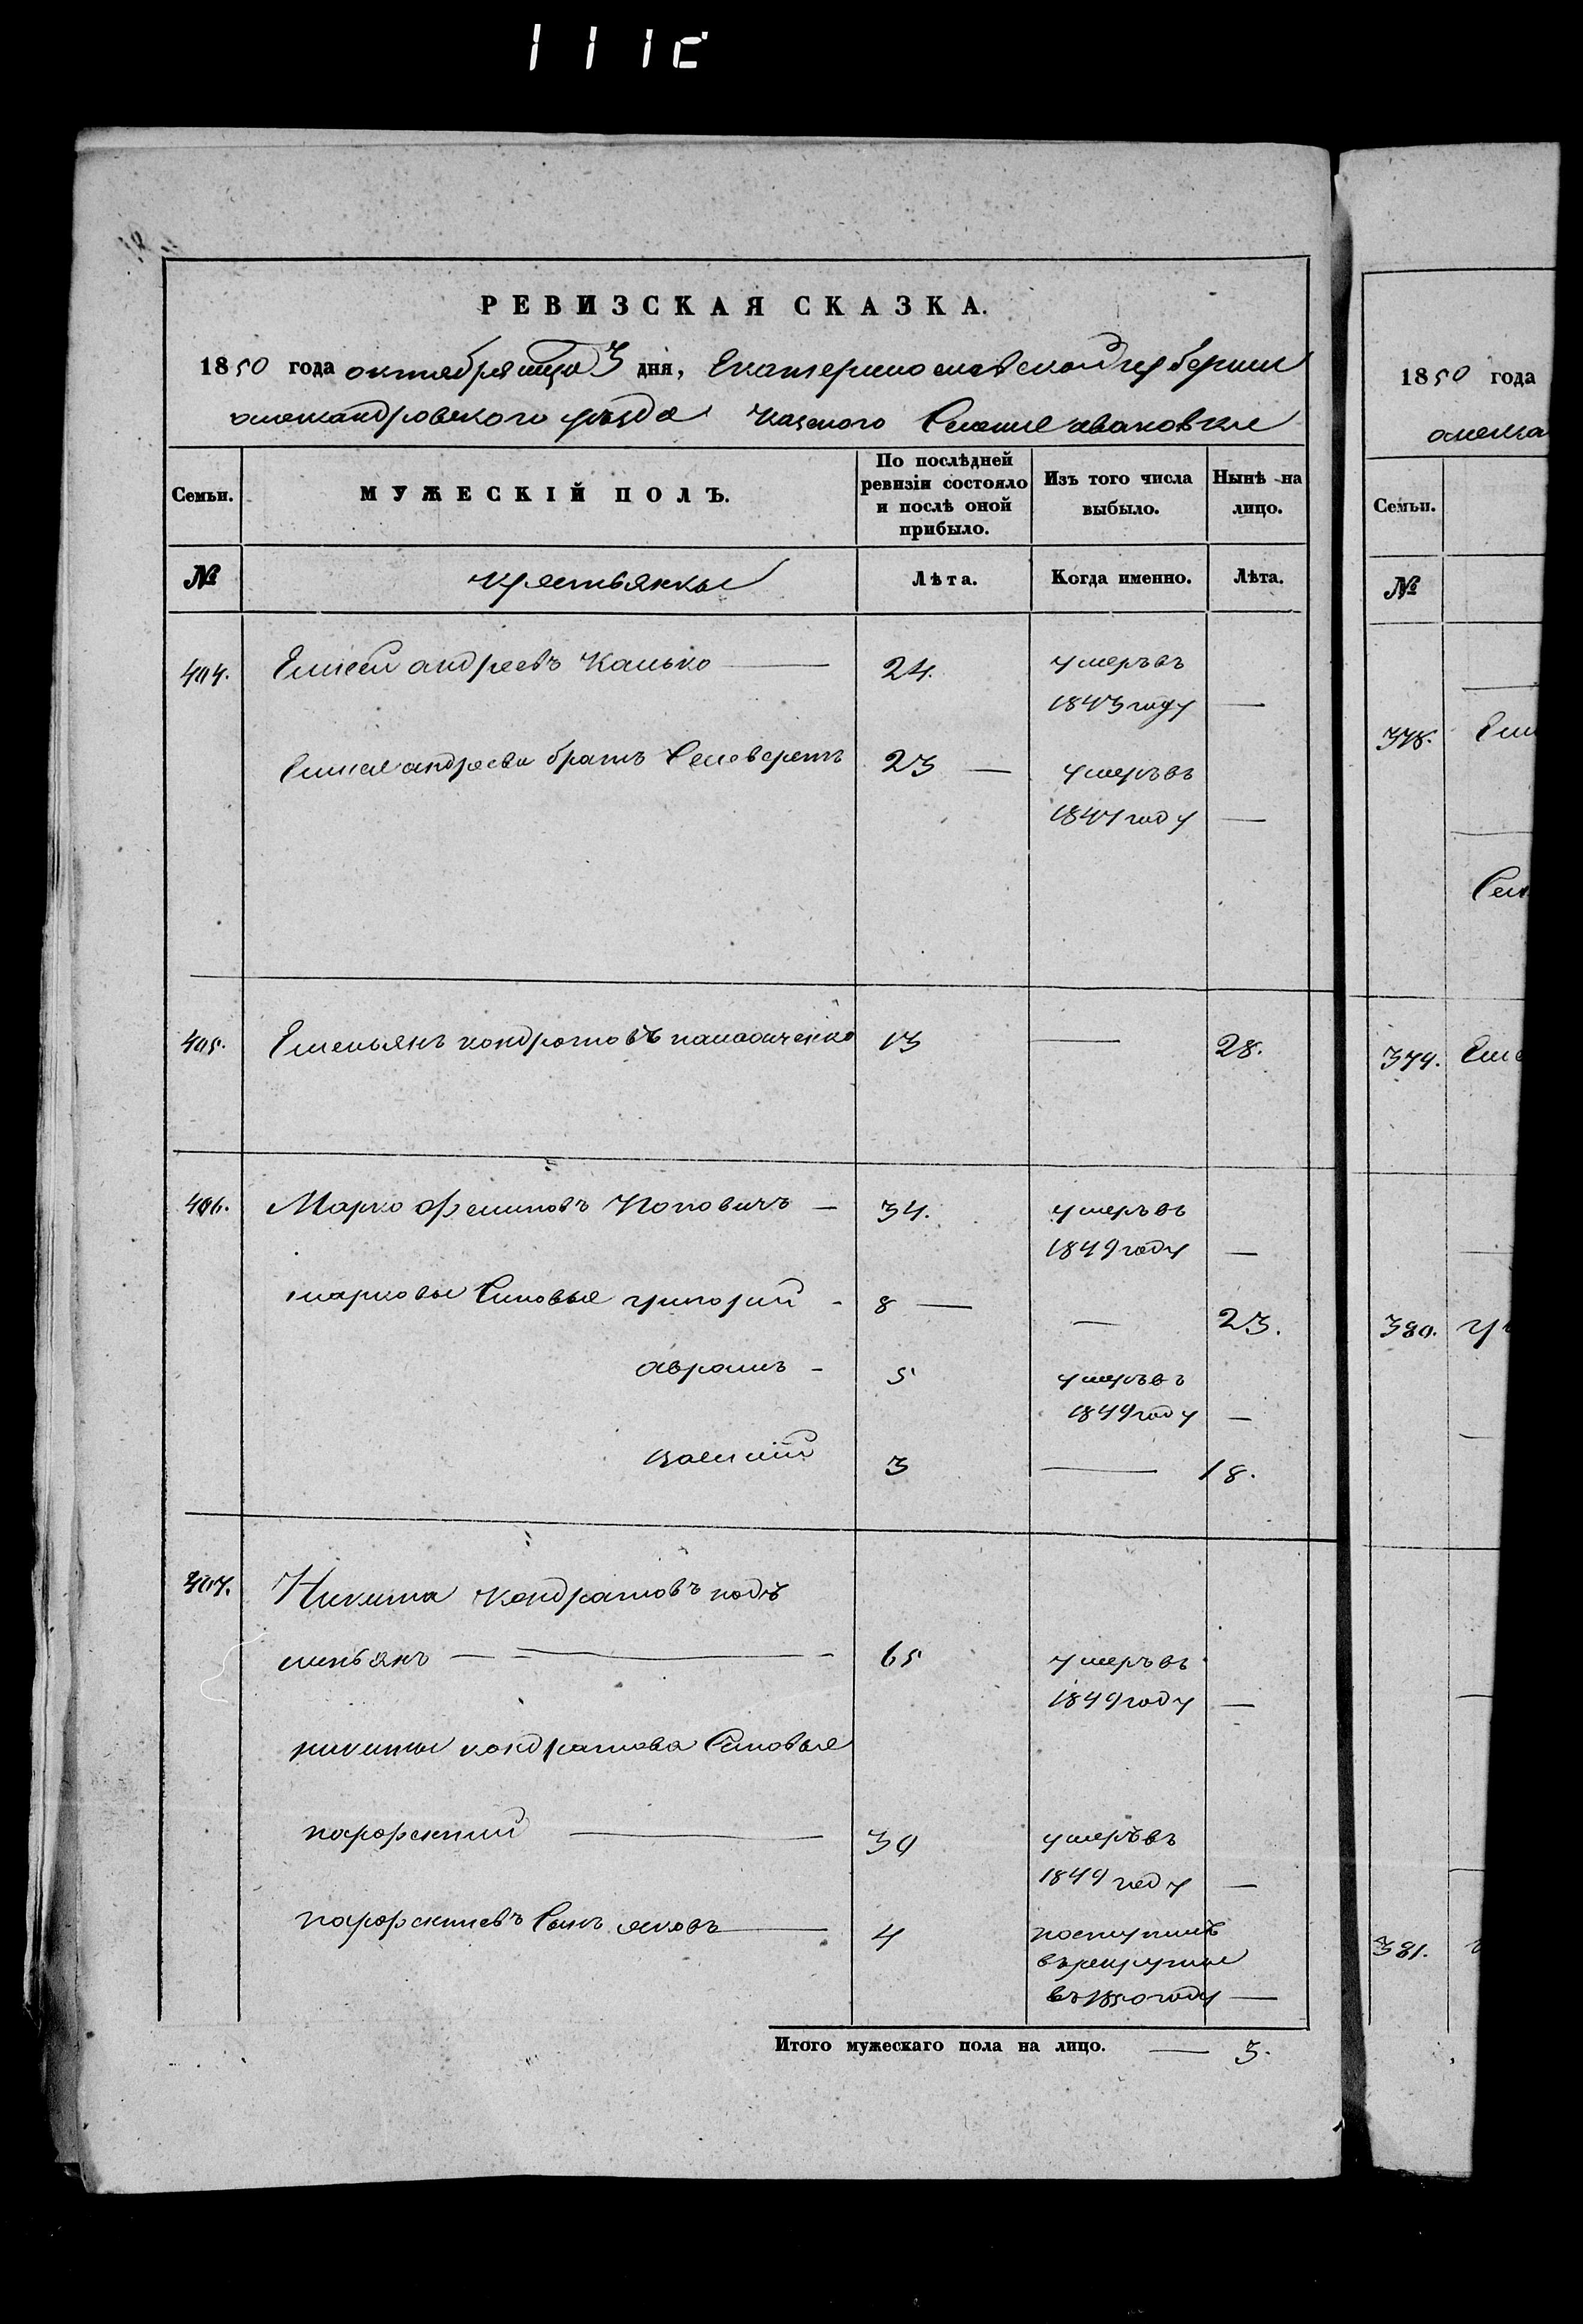 РЕВИЗСКАЯ СКАЗКА.
1850 года октября месяца 3 дня, Екатеринославской губернии
александровского уезда Казеного Селения ивановки
Семьи.
МУЖЕСКІЙ ПОЛЪ.
По послѣдней ревизіи состояло и послѣ оной прибыло.
Изъ того числа выбыло.
Нынѣ на лицо.
№
крестьяны
Лѣта.
Когда именно.
Лѣта.
404. Елисей андреевъ Канько — 24. умеръ въ
1843 году —
Елисея андреева братъ Селеверстъ 23 — умеръ въ
1847 году —
405. Емельянъ кондратовъ 13 — 28.
406. Марко Филиповъ Поповичъ — 34. умеръ въ
1849 году —
марковы Сыновья григорий - 8 — — 23.
аврамъ - 5 умеръ въ
1849 году —
василий 3 — 18.
407. Никита Кондратовъ подъ
— 65 умеръ въ
1849 году —
никиты кондратова Сыновья
парфентий — 39 умеръ въ
1849 году —
парфентиевъ Сынъ яковъ — 4 поступилъ
въ рекруты
въ 1850 году —
Итого мужескаго пола на лицо. — 3.
1850 года
алекса
Семьи.
№
378. Ем
379.
380.
381.